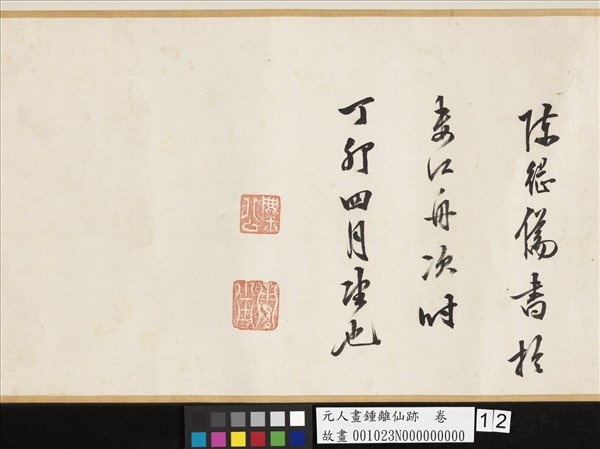 陳繼儒書於
婁江舟次時
丁卯四月望也
元人畫鍾離仙跡 卷
故畫 001023N000000000
1 2